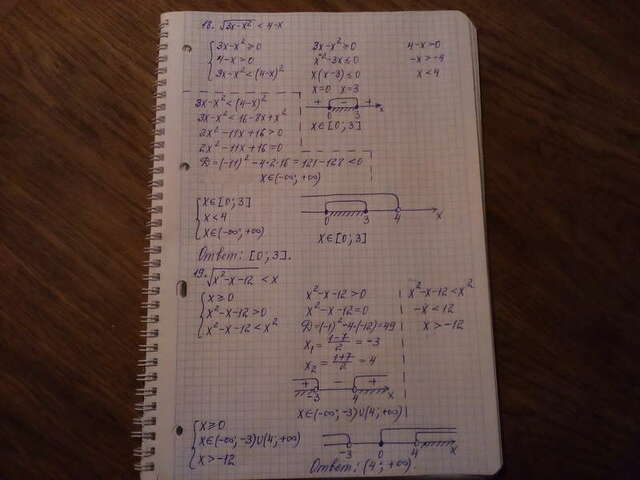 18. √(3x-x²) < 4-x
{ 3x-x² ≥ 0
4-x > 0
3x-x² < (4-x)²
3x-x² ≥ 0
x²-3x ≤ 0
x(x-3) ≤ 0
x=0 x=3
+ - + x
0 3
x∈[0;3]
4-x>0
-x>-4
x<4
3x-x² < (4-x)²
3x-x² < 16-8x+x²
2x²-11x+16>0
2x²-11x+16=0
D=(-11)²-4·2·16=121-128<0
x∈(-∞;+∞)
{ x∈[0;3]
x<4
x∈(-∞;+∞)
0 3 4 x
x∈[0;3]
Ответ: [0;3].
19. √(x²-x-12) < x
{ x≥0
x²-x-12>0
x²-x-12<x²
x²-x-12>0
x²-x-12=0
D=(-1)²-4·(-12)=49
x₁ = (1-7)/2 = -3
x₂ = (1+7)/2 = 4
+ - +
-3 4 x
x∈(-∞;-3)∪(4;+∞)
x²-x-12<x²
-x<12
x>-12
{ x≥0
x∈(-∞;-3)∪(4;+∞)
x>-12
-3 0 4 x
Ответ: (4;+∞).